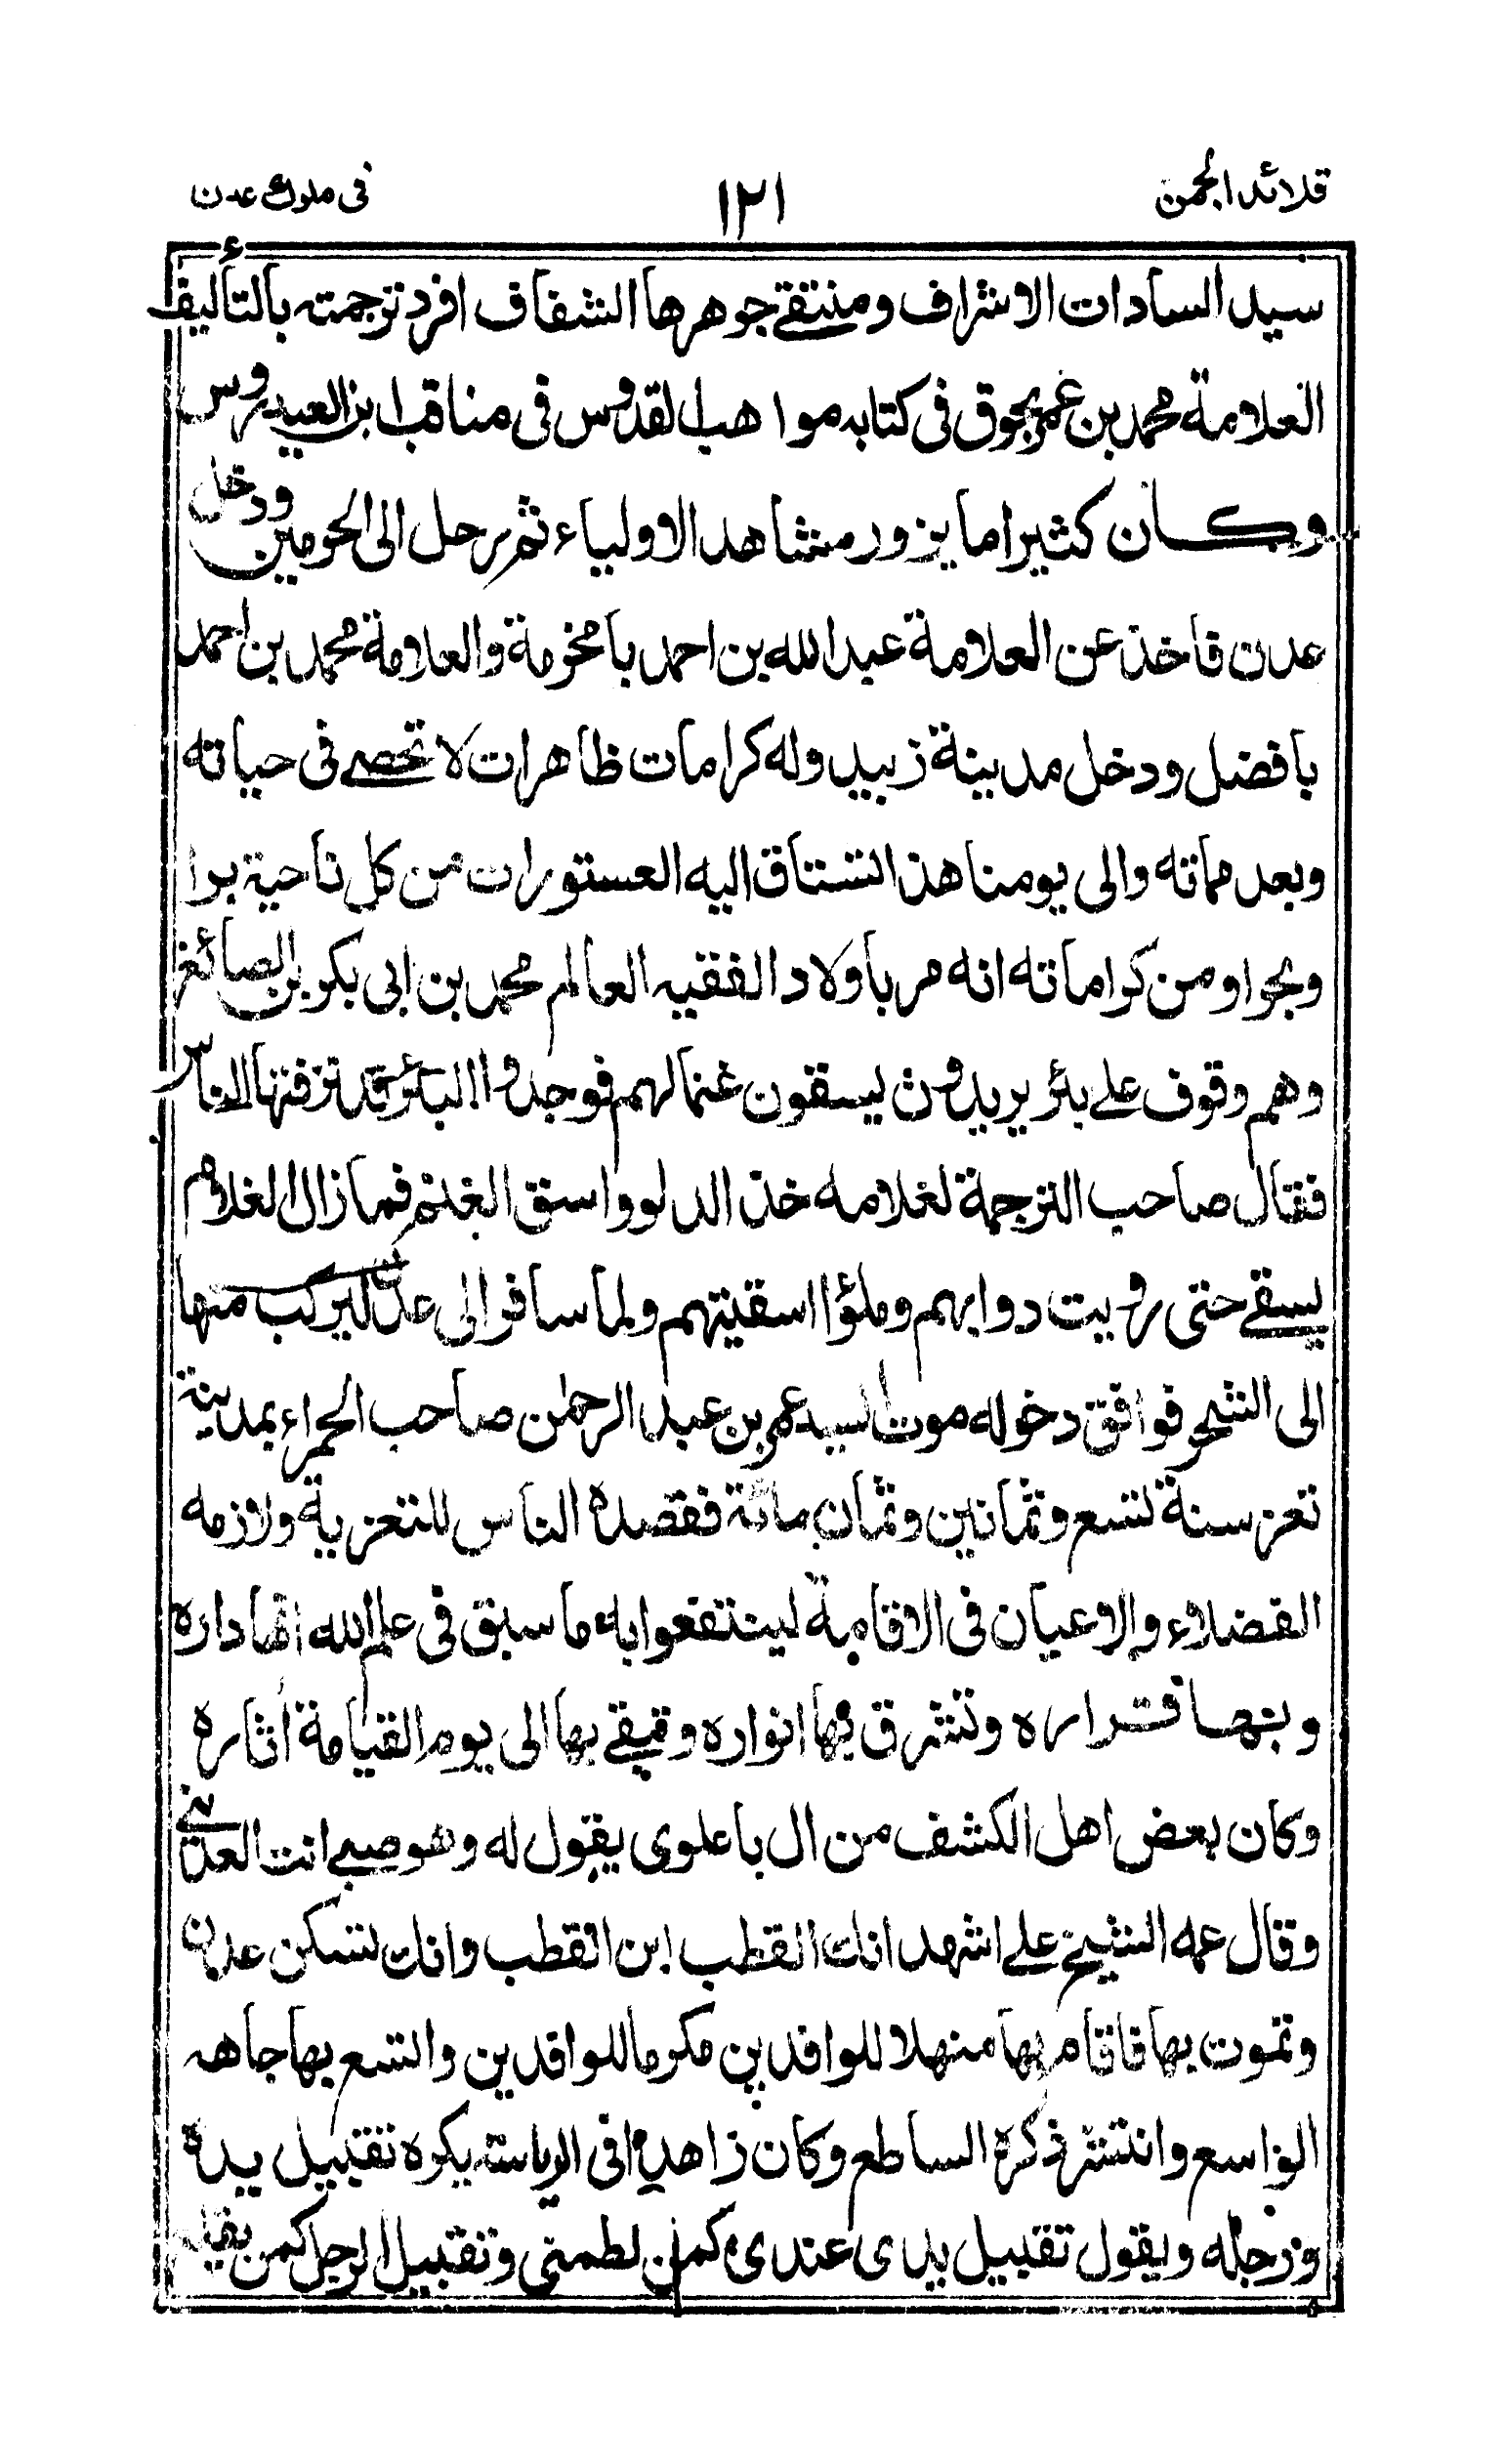 قلائد الجمن ١٢١ فى ملوك عدن
سيد السادات الاشراف ومنتقے جوهرها الشفاف افرد ترجمته بالتأليف
العلامة محمد بن عمر بحوق فى كتابه مواهب القدوس فى مناقب ابن العيدروس
وكان كثيرا ما يزور مشاهد الاولياء ثم رحل الى الحرمين ودخل
عدن فاخذ عن العلامة عبد الله بن احمد با مخرمة والعلامة محمد بن احمد
بافضل ودخل مدينة زبيد وله كرامات ظاهرات لا تحصے فى حياته
وبعد مماته والى يومنا هذا تشتاق اليه العستورات من كل ناحية برا
وبحرا ومن كراماته انه مر باولاد الفقيه العالم محمد بن ابى بكر بن الصائغ
وهم وقوف علے بئر يريدون يسقون غنما لهم فوجدوا البئر قد نزفتها الناس
فقال صاحب الترجمة لغلامه خذ الدلو واسق الغنم فما زال الغلام
يسقے حتى رويت دوابهم وملؤا اسقيتهم ولما سافر الى عدن ليركب منها
الى الشحر فوافق دخوله موت السيد عمر بن عبد الرحمٰن صاحب الحمراء بمدينة
تعز سنة تسع وثمانين وثمان مائة فقصده الناس للتعزية ولازمه
الفضلاء والاعيان فى الاقامة لينتفعوا به ما سبق فى علم الله انها داره
وبها قراره وتشرق بها انواره وتبقے بها الى يوم القيامة اثاره
وكان بعض اهل الكشف من ال با علوى يقول له وهو صبے انت العدنے
وقال عمه الشيخ علے اشهد انك القطب ابن القطب وانك تسكن عدن
وتموت بها فاقام بها منهلا للوافدين مكرما للوافدين واتسع بها جاهه
الواسع وانتشر ذكره الساطع وكان زاهدا فى الرياسة يكره تقبيل يده
ورجله ويقول تقبيل يدى عندى كمن لطمنى وتقبيل الرجل كمن